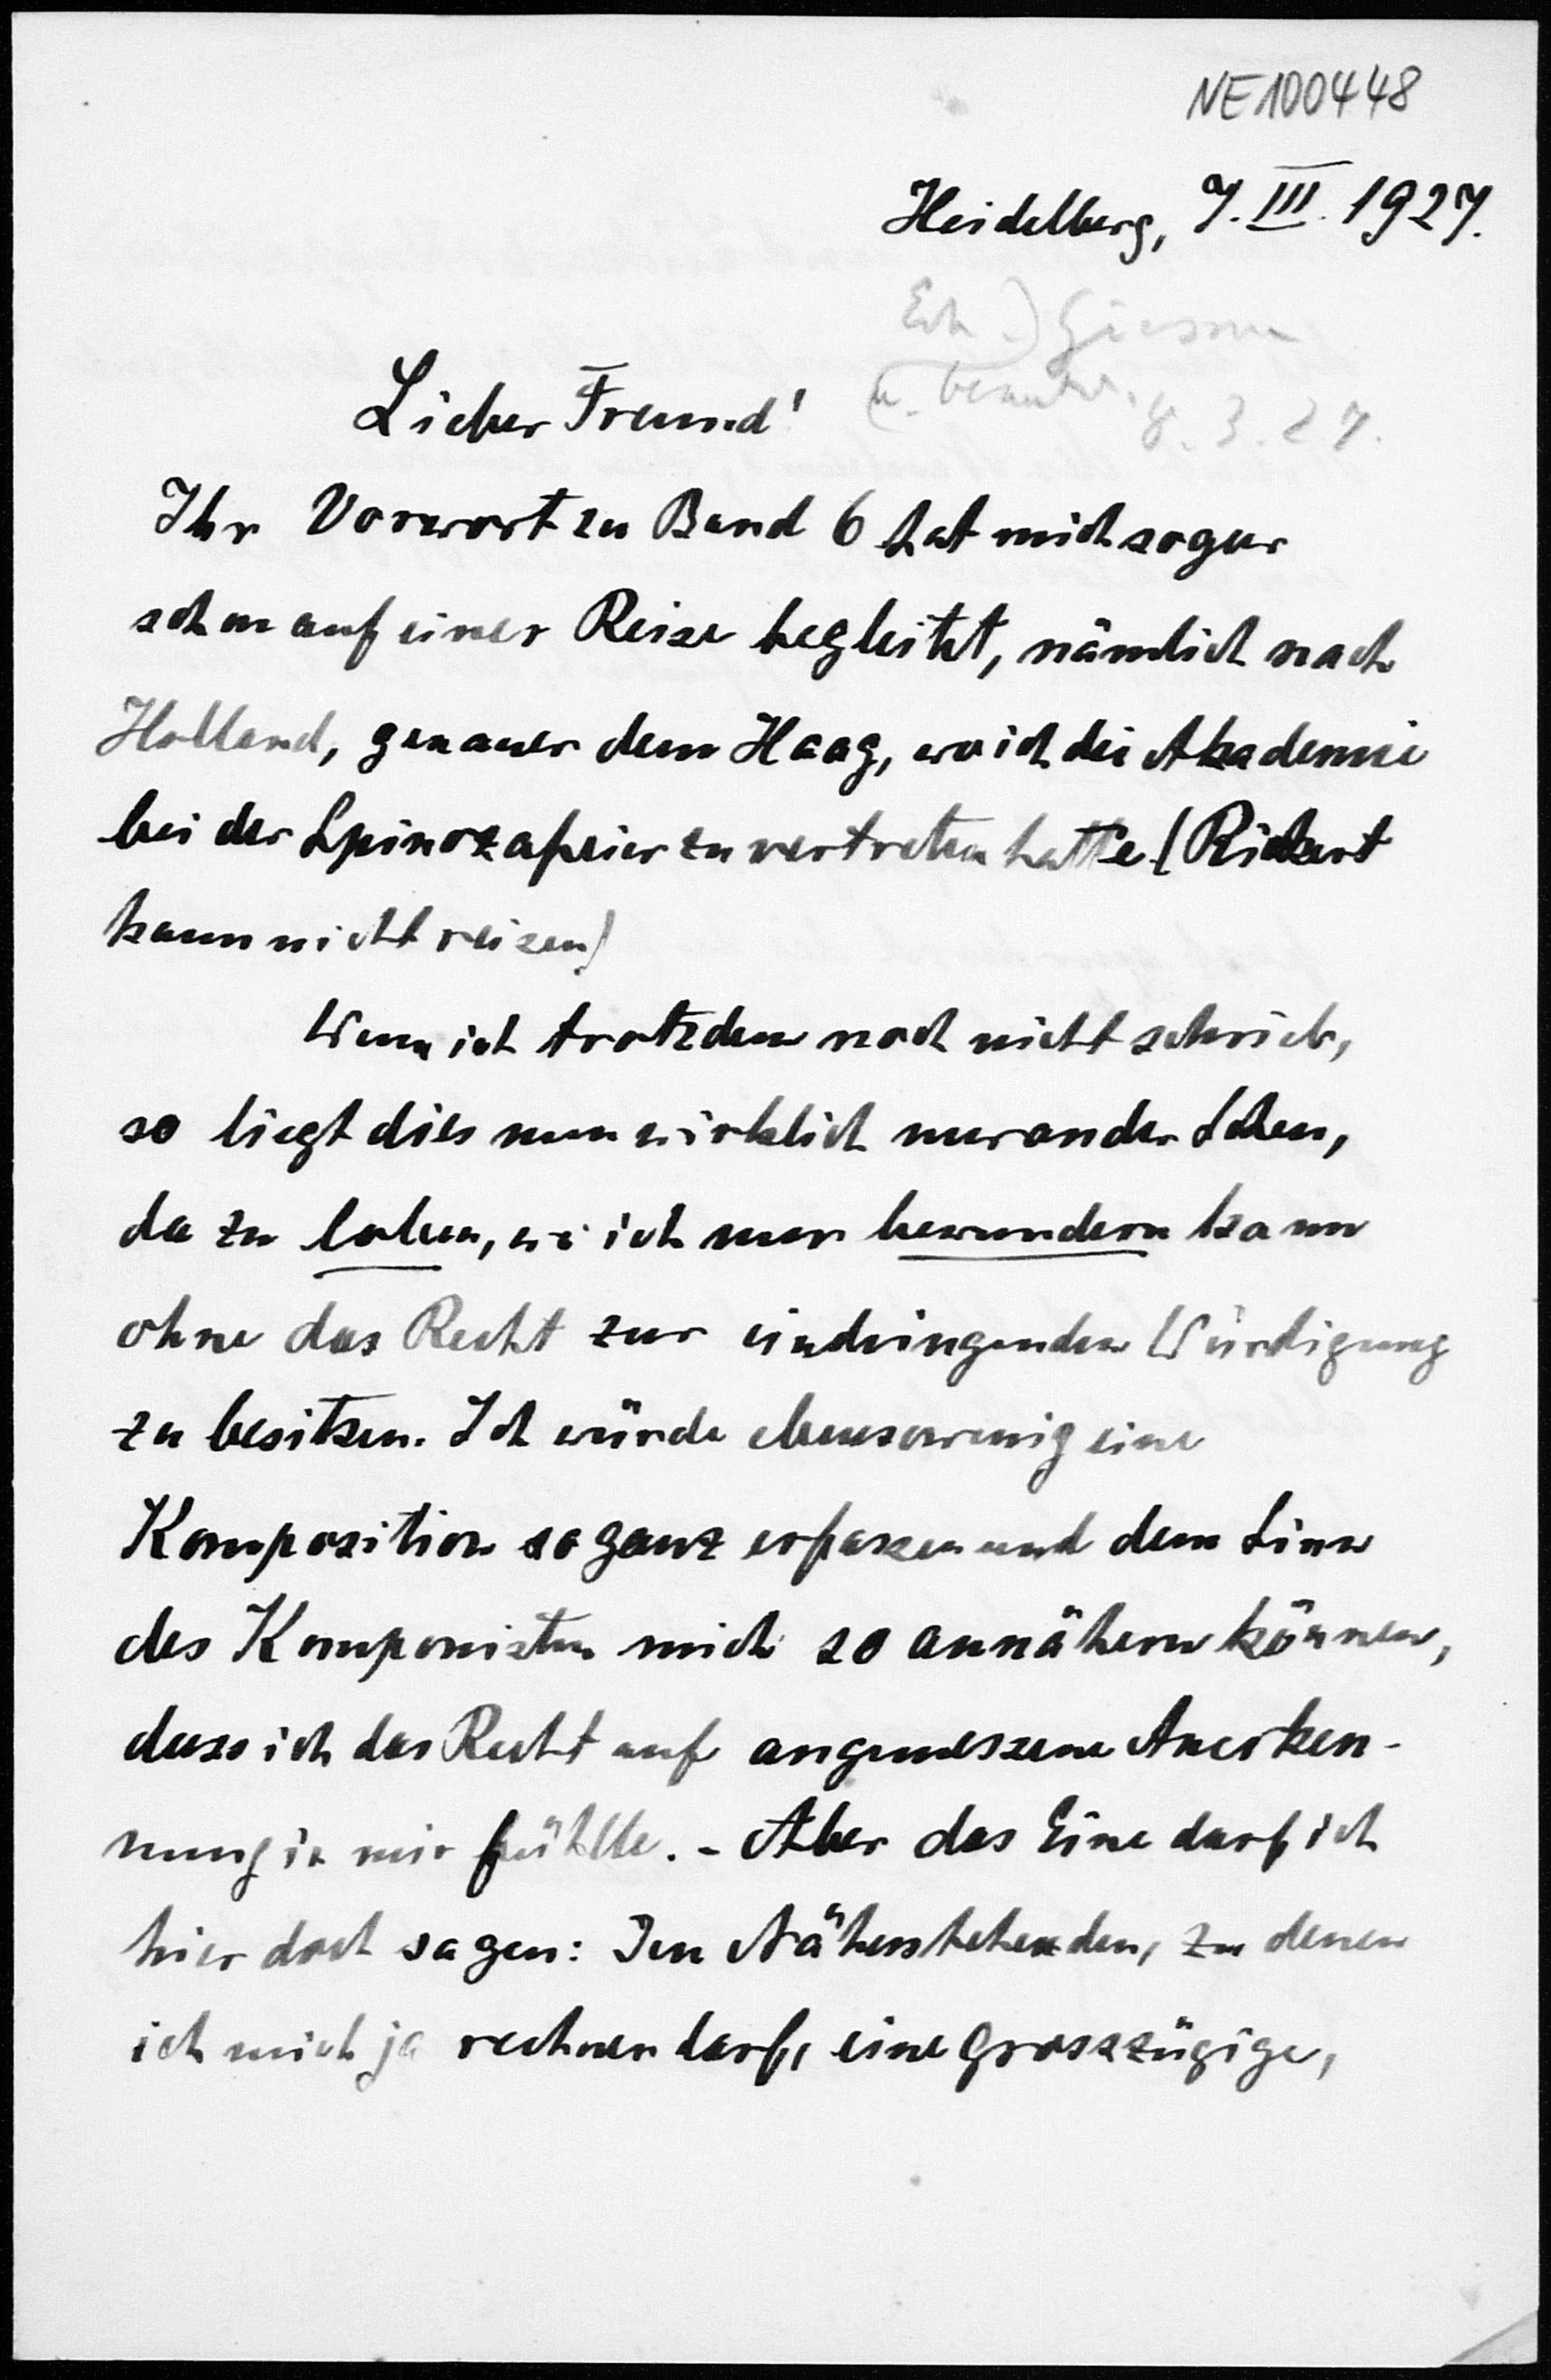 NE100448
Heidelberg, 7. III. 1927.
Giessen
u. beantw. 8. 3. 27.
Lieber Freund!
Ihr Vorwort zu Band 6 hat mich sogar
schon auf einer Reise begleitet, nämlich nach
Holland, genauer dem Haag, wo ich die Akademie
bei der Spinozafeier zu vertreten hatte. (Rickert
kann nicht reisen)
Wenn ich trotzdem noch nicht schrieb,
so liegt dies nun wirklich nur an der Scheu,
da zu loben, wo ich nur bewundern kann
ohne das Recht zur eindringenden Würdigung
zu besitzen. Ich würde ebensowenig eine
Komposition so ganz erfassen und dem Sinn
des Komponisten mich so annähern können,
dass ich das Recht auf angemessene Anerken-
nung in mir fühlte. - Aber das Eine darf ich
hier doch sagen: Den Näherstehenden, zu denen
ich mich ja rechnen darf, eine grosszügige,